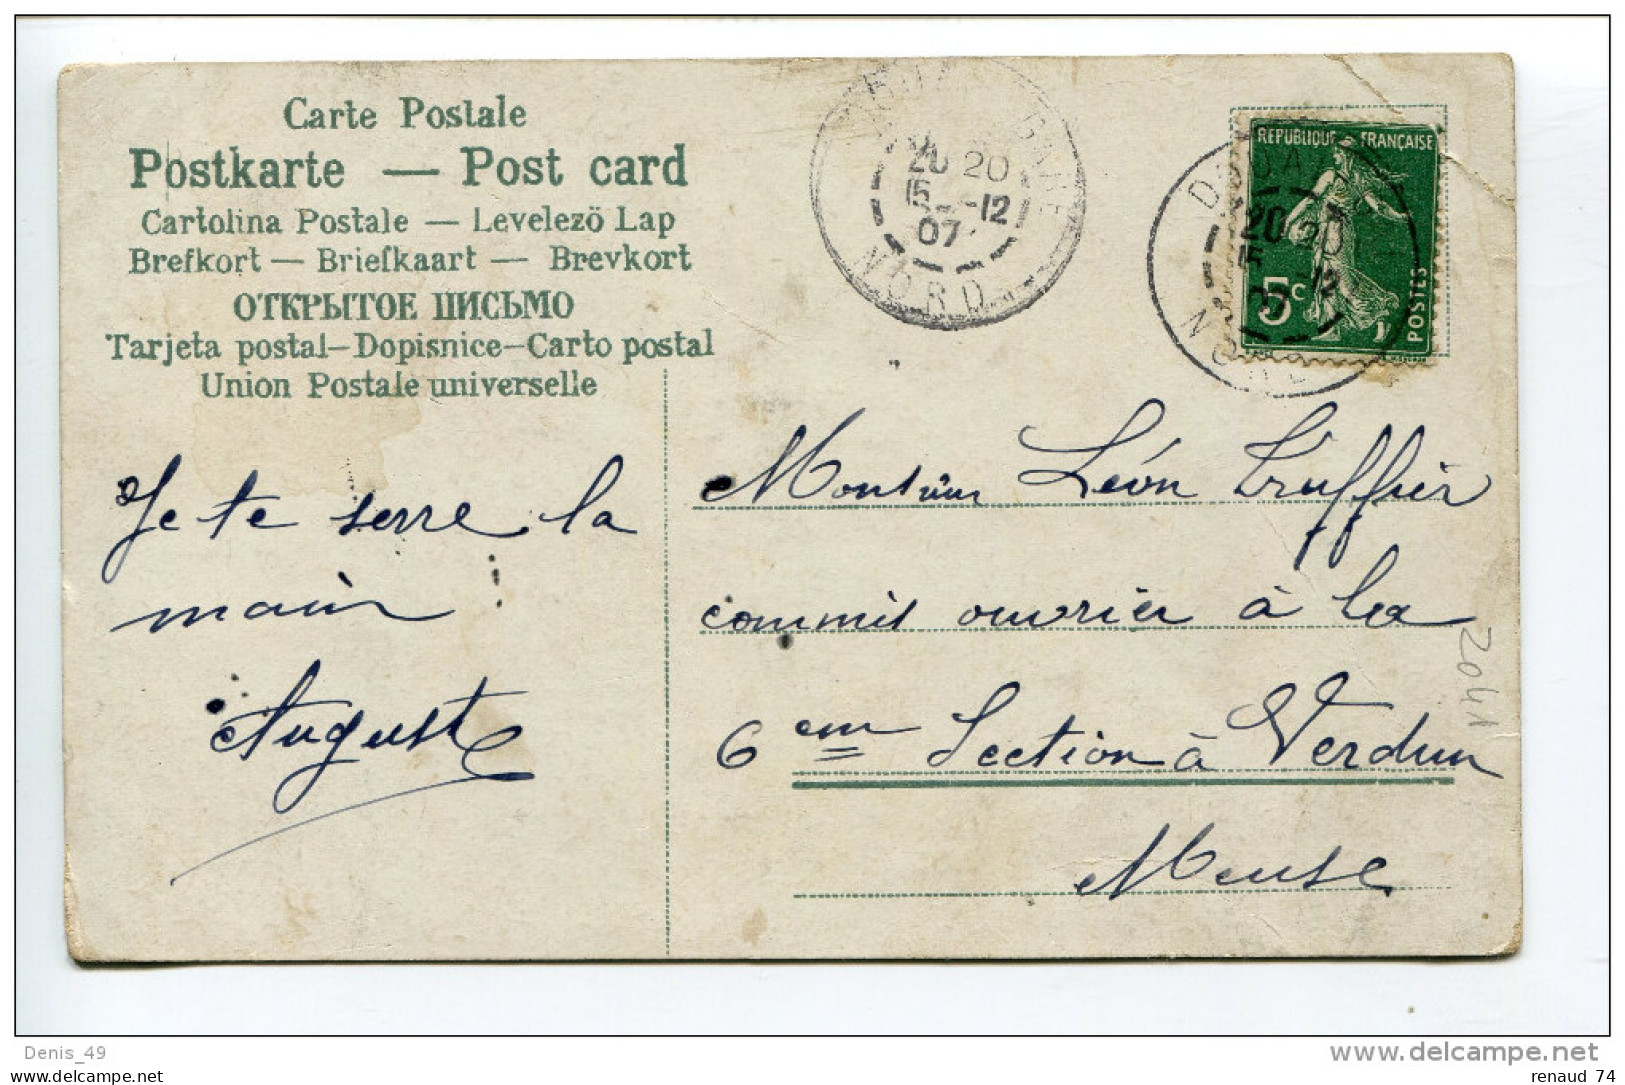 Carte Postale
Postkarte — Post card
Cartolina Postale — Levelező Lap
Brefkort — Briefkaart — Brevkort
ОТКРЫТОЕ ПИСЬМО
Tarjeta postal–Dopisnice–Carto postal
Union Postale universelle
20 20
15 -12
07
NORD
REPUBLIQUE FRANÇAISE
5c
POSTES
20 20
15 -12
07
NORD
Je te serre la
main
Auguste
Monsieur Léon Truffier
commis ouvrier à la
6 em Section à Verdun
Meuse
2041
Denis_49
www.delcampe.net
renaud 74